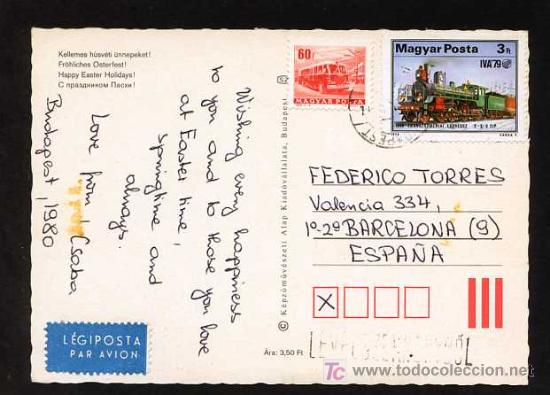 Kellemes húsvéti ünnepeket!
Fröhliches Osterfest!
Happy Easter Holidays!
С праздником Пасхи!
Wishing every happiness
to you and to those you love
at Easter time,
springtime and
always.
Love from Csaba
Budapest, 1980
LÉGIPOSTA
PAR AVION
© Képzőművészeti Alap Kiadóvállalata, Budapest
Ára: 3,50 Ft
60
MAGYAR POSTA
Magyar Posta 3 Ft
IVA 79
FEDERICO TORRES
Valencia 334,
1º-2ª BARCELONA (9)
ESPAÑA
X
TC todocoleccion.net